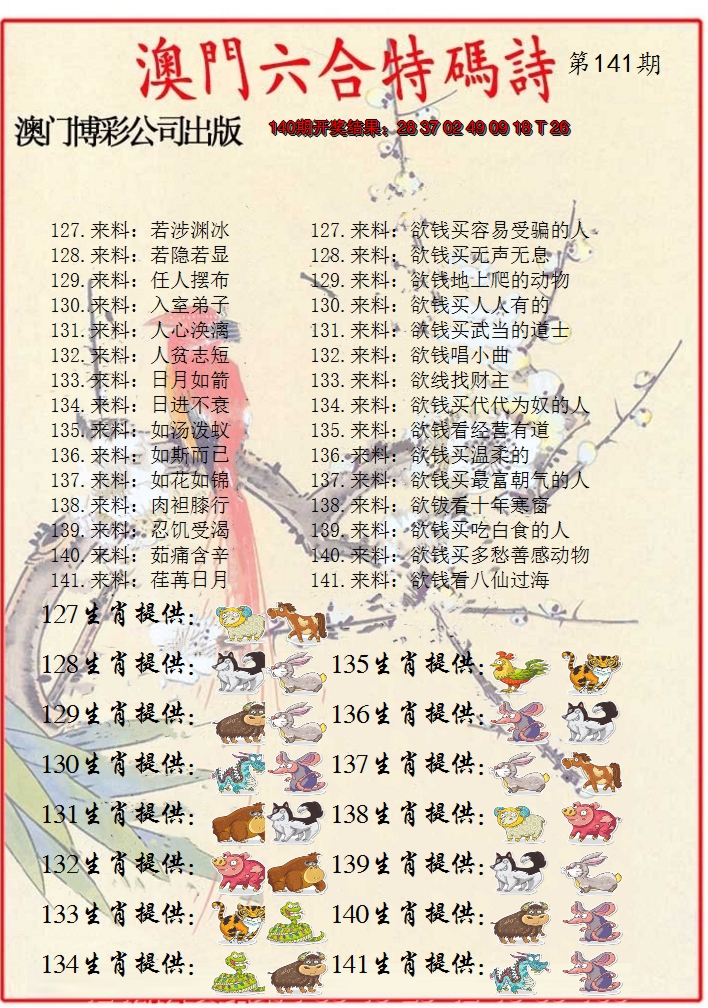 澳門六合特碼詩 第141期
澳门博彩公司出版 140期开奖结果：28 37 02 49 09 18 T 26
127.来料：若涉渊冰 127.来料：欲钱买容易受骗的人
128.来料：若隐若显 128.来料：欲钱买无声无息
129.来料：任人摆布 129.来料：欲钱地上爬的动物
130.来料：入室弟子 130.来料：欲钱买人人有的
131.来料：人心涣漓 131.来料：欲钱买武当的道士
132.来料：人贫志短 132.来料：欲钱唱小曲
133.来料：日月如箭 133.来料：欲线找财主
134.来料：日进不衰 134.来料：欲钱买代代为奴的人
135.来料：如汤泼蚁 135.来料：欲钱看经营有道
136.来料：如斯而已 136.来料：欲钱买温柔的
137.来料：如花如锦 137.来料：欲钱买最富朝气的人
138.来料：肉袒膝行 138.来料：欲钹看十年寒窗
139.来料：忍饥受渴 139.来料：欲钱买吃白食的人
140.来料：茹痛含辛 140.来料：欲钱买多愁善感动物
141.来料：荏苒日月 141.来料：欲钱看八仙过海
127生肖提供：
128生肖提供： 135生肖提供：
129生肖提供： 136生肖提供：
130生肖提供： 137生肖提供：
131生肖提供： 138生肖提供：
132生肖提供： 139生肖提供：
133生肖提供： 140生肖提供：
134生肖提供： 141生肖提供：